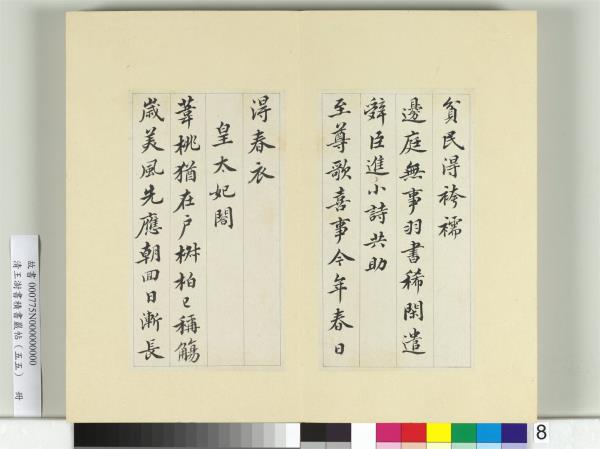 貧民得袴襦
邊庭無事羽書稀閑遣
辭臣進小詩共助
至尊歌喜事今年春日
得春衣
皇太妃閤
葦桃猶在戶椒柏已稱觴
歲美風先應朝回日漸長
故書000775N000000000
清王澍書積書巖帖（五五） 冊
8